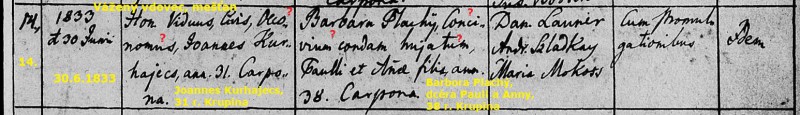 Vazeny ydovec, meštan
14, 1833 d 30 Junii
Hon. Viduus, Civis, Oeco-
nomus, Joannes Kur-
hajecs, ann. 31. Carpo-
na.
Barbara Plachÿ, Conci-
vium condam
Paulli et Añæ filia, ann
38. Carpona
Dan. Launer
Andr. Sladkay
Maria Mokoss
Cum Promul-
gationibus
Idem
14.
30.6.1833
Joannes Kurhajecs,
31 r. Krupina
Barbora Plachy,
dcera Pauli a Anny,
38 r. Krupina